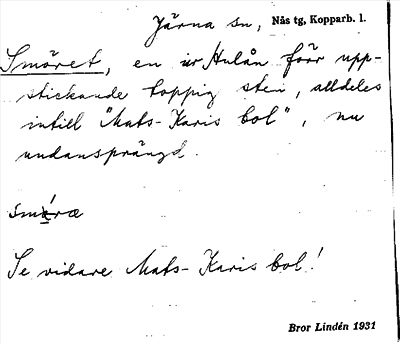 Järna sn, Nås tg, Kopparb. l.
Smöret, en ur Hulån förr upp-
stickande toppig sten, alldeles
intill "Mats-Karis bol", nu
undansprängd.
Se vidare Mats-Karis bol!
Bror Lindén 1931